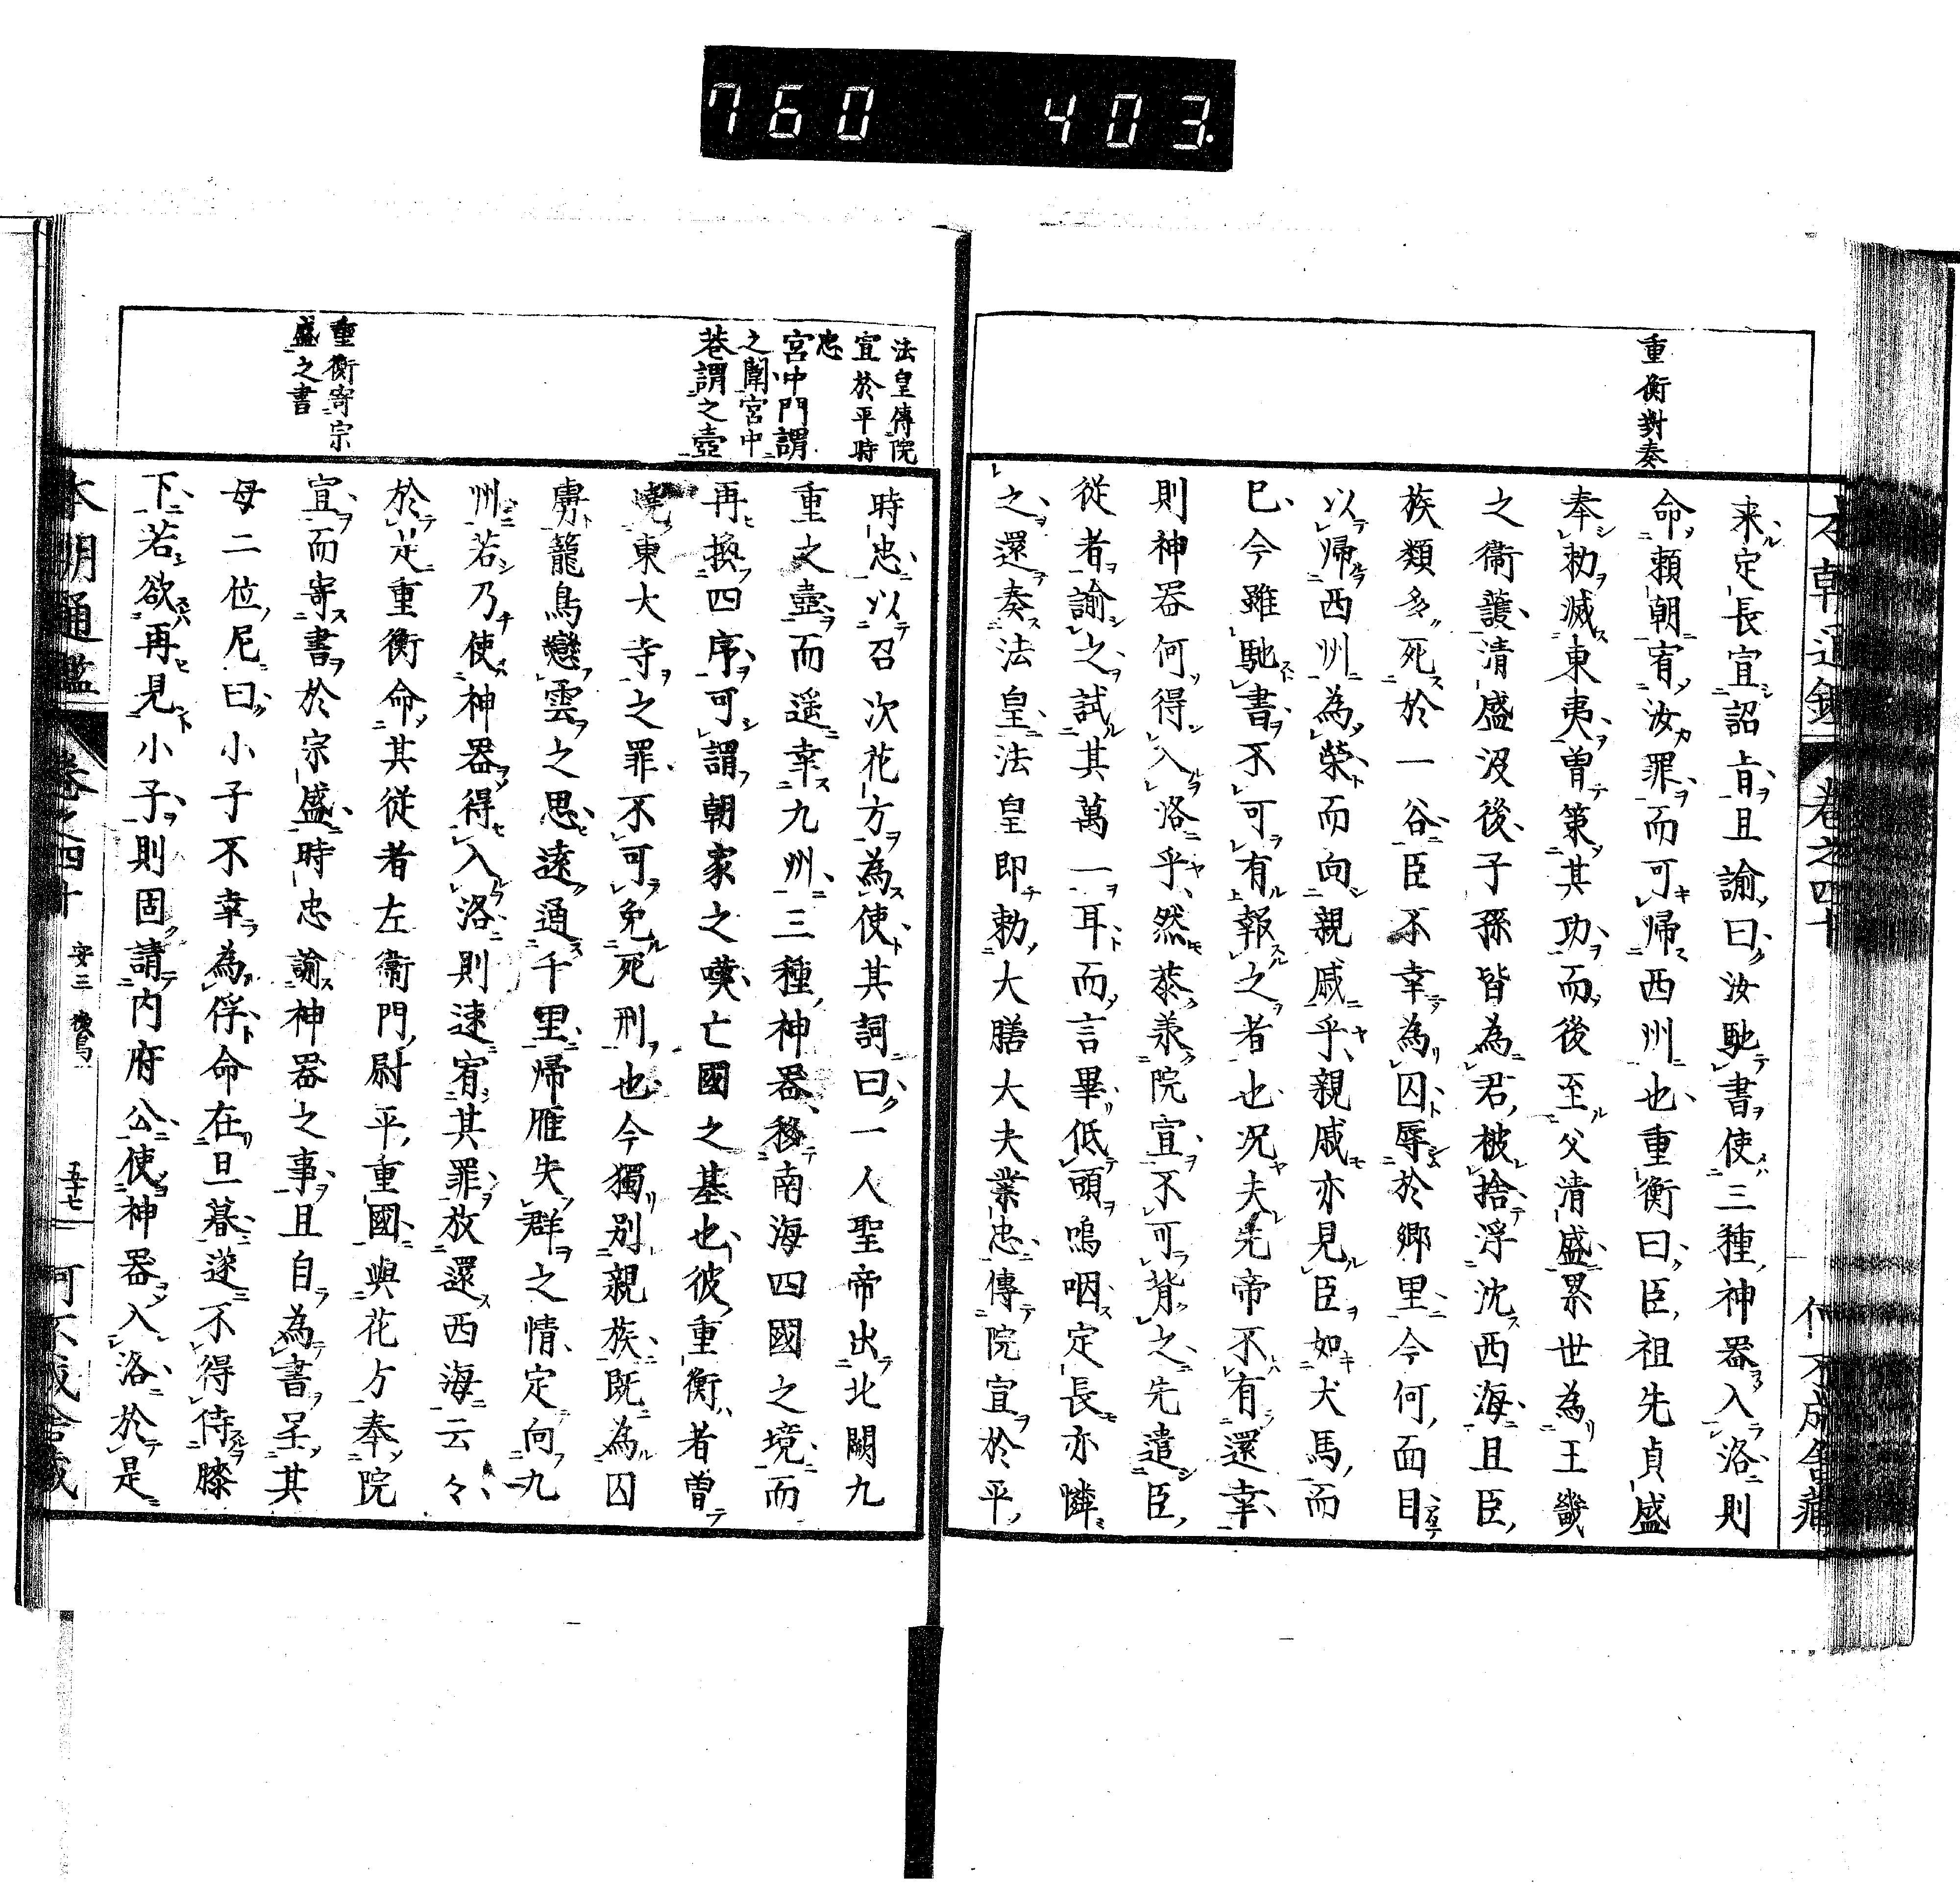 760 403.
重衡對奏
本朝通鑑 卷之四十
来定長宣詔旨且諭曰汝馳書使三種神器入洛則
命頼朝宥汝罪而可帰西州也重衡曰臣祖先貞盛
奉勅滅東夷曽策其功而後至父清盛累世為王畿
之衞護清盛没後子孫皆為君被捨浮沈西海且臣
族類多死於一谷臣不幸為囚辱於郷里今何面目
以帰西州為榮而向親戚乎親戚亦見臣如犬馬而
已今雖馳書不可有報之者也况夫先帝不有還幸
則神器何得入洛乎然恭承院宣不可背之先遣臣
從者諭之試其萬一耳而言畢低頭嗚咽定長亦憐
之還奏法皇法皇即勅大膳大夫業忠傳院宣於平
法皇傳院
宣於平時
忠
宮中門謂
之闈宮中
巷謂之壼
時忠以召次花方為使其詞曰一人聖帝出北闕九
重之壼而遥幸九州三種神器移南海四國之境而
再換四序可謂朝家之嘆亡國之基也彼重衡者曽
燒東大寺之罪不可免死刑也今獨別親族既為囚
虜籠鳥戀雲之思遠通千里帰雁失群之情定向九
州若乃使神器得入洛則速宥其罪放還西海云々
於是重衡命其從者左衞門尉平重國與花方奉院
宣而寄書於宗盛時忠諭神器之事且自為書呈其
重衡寄宗
盛之書
母二位尼曰小子不幸為俘命在旦暮遂不得侍膝
下若欲再見小子則固請内府公使神器入洛於是
本朝通鑑 卷之四十 安三 五十七